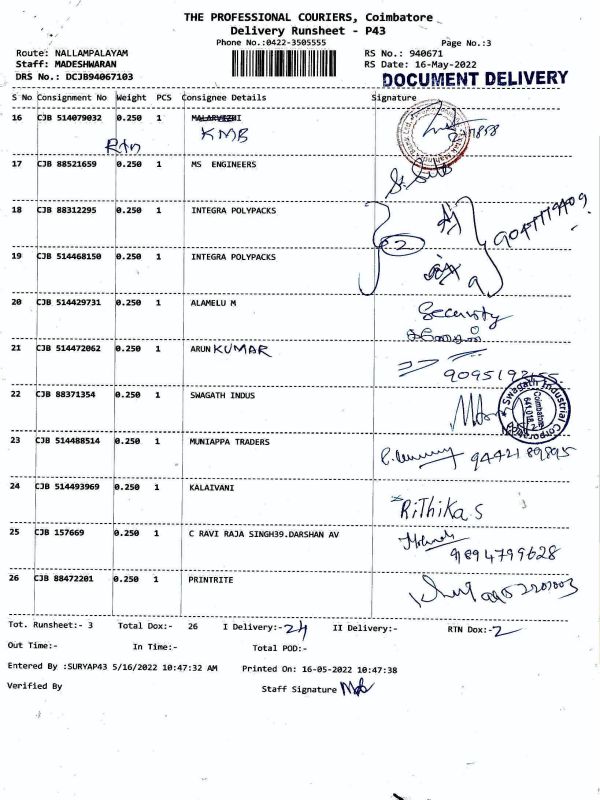 THE PROFESSIONAL COURIERS, Coimbatore
Delivery Runsheet - P43
Phone No.:0422-3505555
Page No.:3
Route: NALLAMPALAYAM
RS No.: 940671
Staff: MADESHWARAN
RS Date: 16-May-2022
DRS No.: DCJB94067103
DOCUMENT DELIVERY
S No Consignment No Weight PCS Consignee Details Signature
16 CJB 514079032 0.250 1
Rtn KMB
17 CJB 88521659 0.250 1 MS ENGINEERS
18 CJB 88312295 0.250 1 INTEGRA POLYPACKS
2
19 CJB 514468150 0.250 1 INTEGRA POLYPACKS
20 CJB 514429731 0.250 1 ALAMELU M Security
21 CJB 514472062 0.250 1 ARUN KUMAR
22 CJB 88371354 0.250 1 SWAGATH INDUS
Swagath Industrial Corporation
Coimbatore
23 CJB 514488514 0.250 1 MUNIAPPA TRADERS
94421 89895
24 CJB 514493969 0.250 1 KALAIVANI
RiThika S
25 CJB 157669 0.250 1 C RAVI RAJA SINGH39.DARSHAN AV
9894799628
26 CJB 88472201 0.250 1 PRINTRITE
Tot. Runsheet:- 3 Total Dox:- 26 I Delivery:- 24 II Delivery:- RTN Dox:- 2
Out Time:- In Time:- Total POD:-
Entered By :SURYAP43 5/16/2022 10:47:32 AM Printed On: 16-05-2022 10:47:38
Verified By Staff Signature